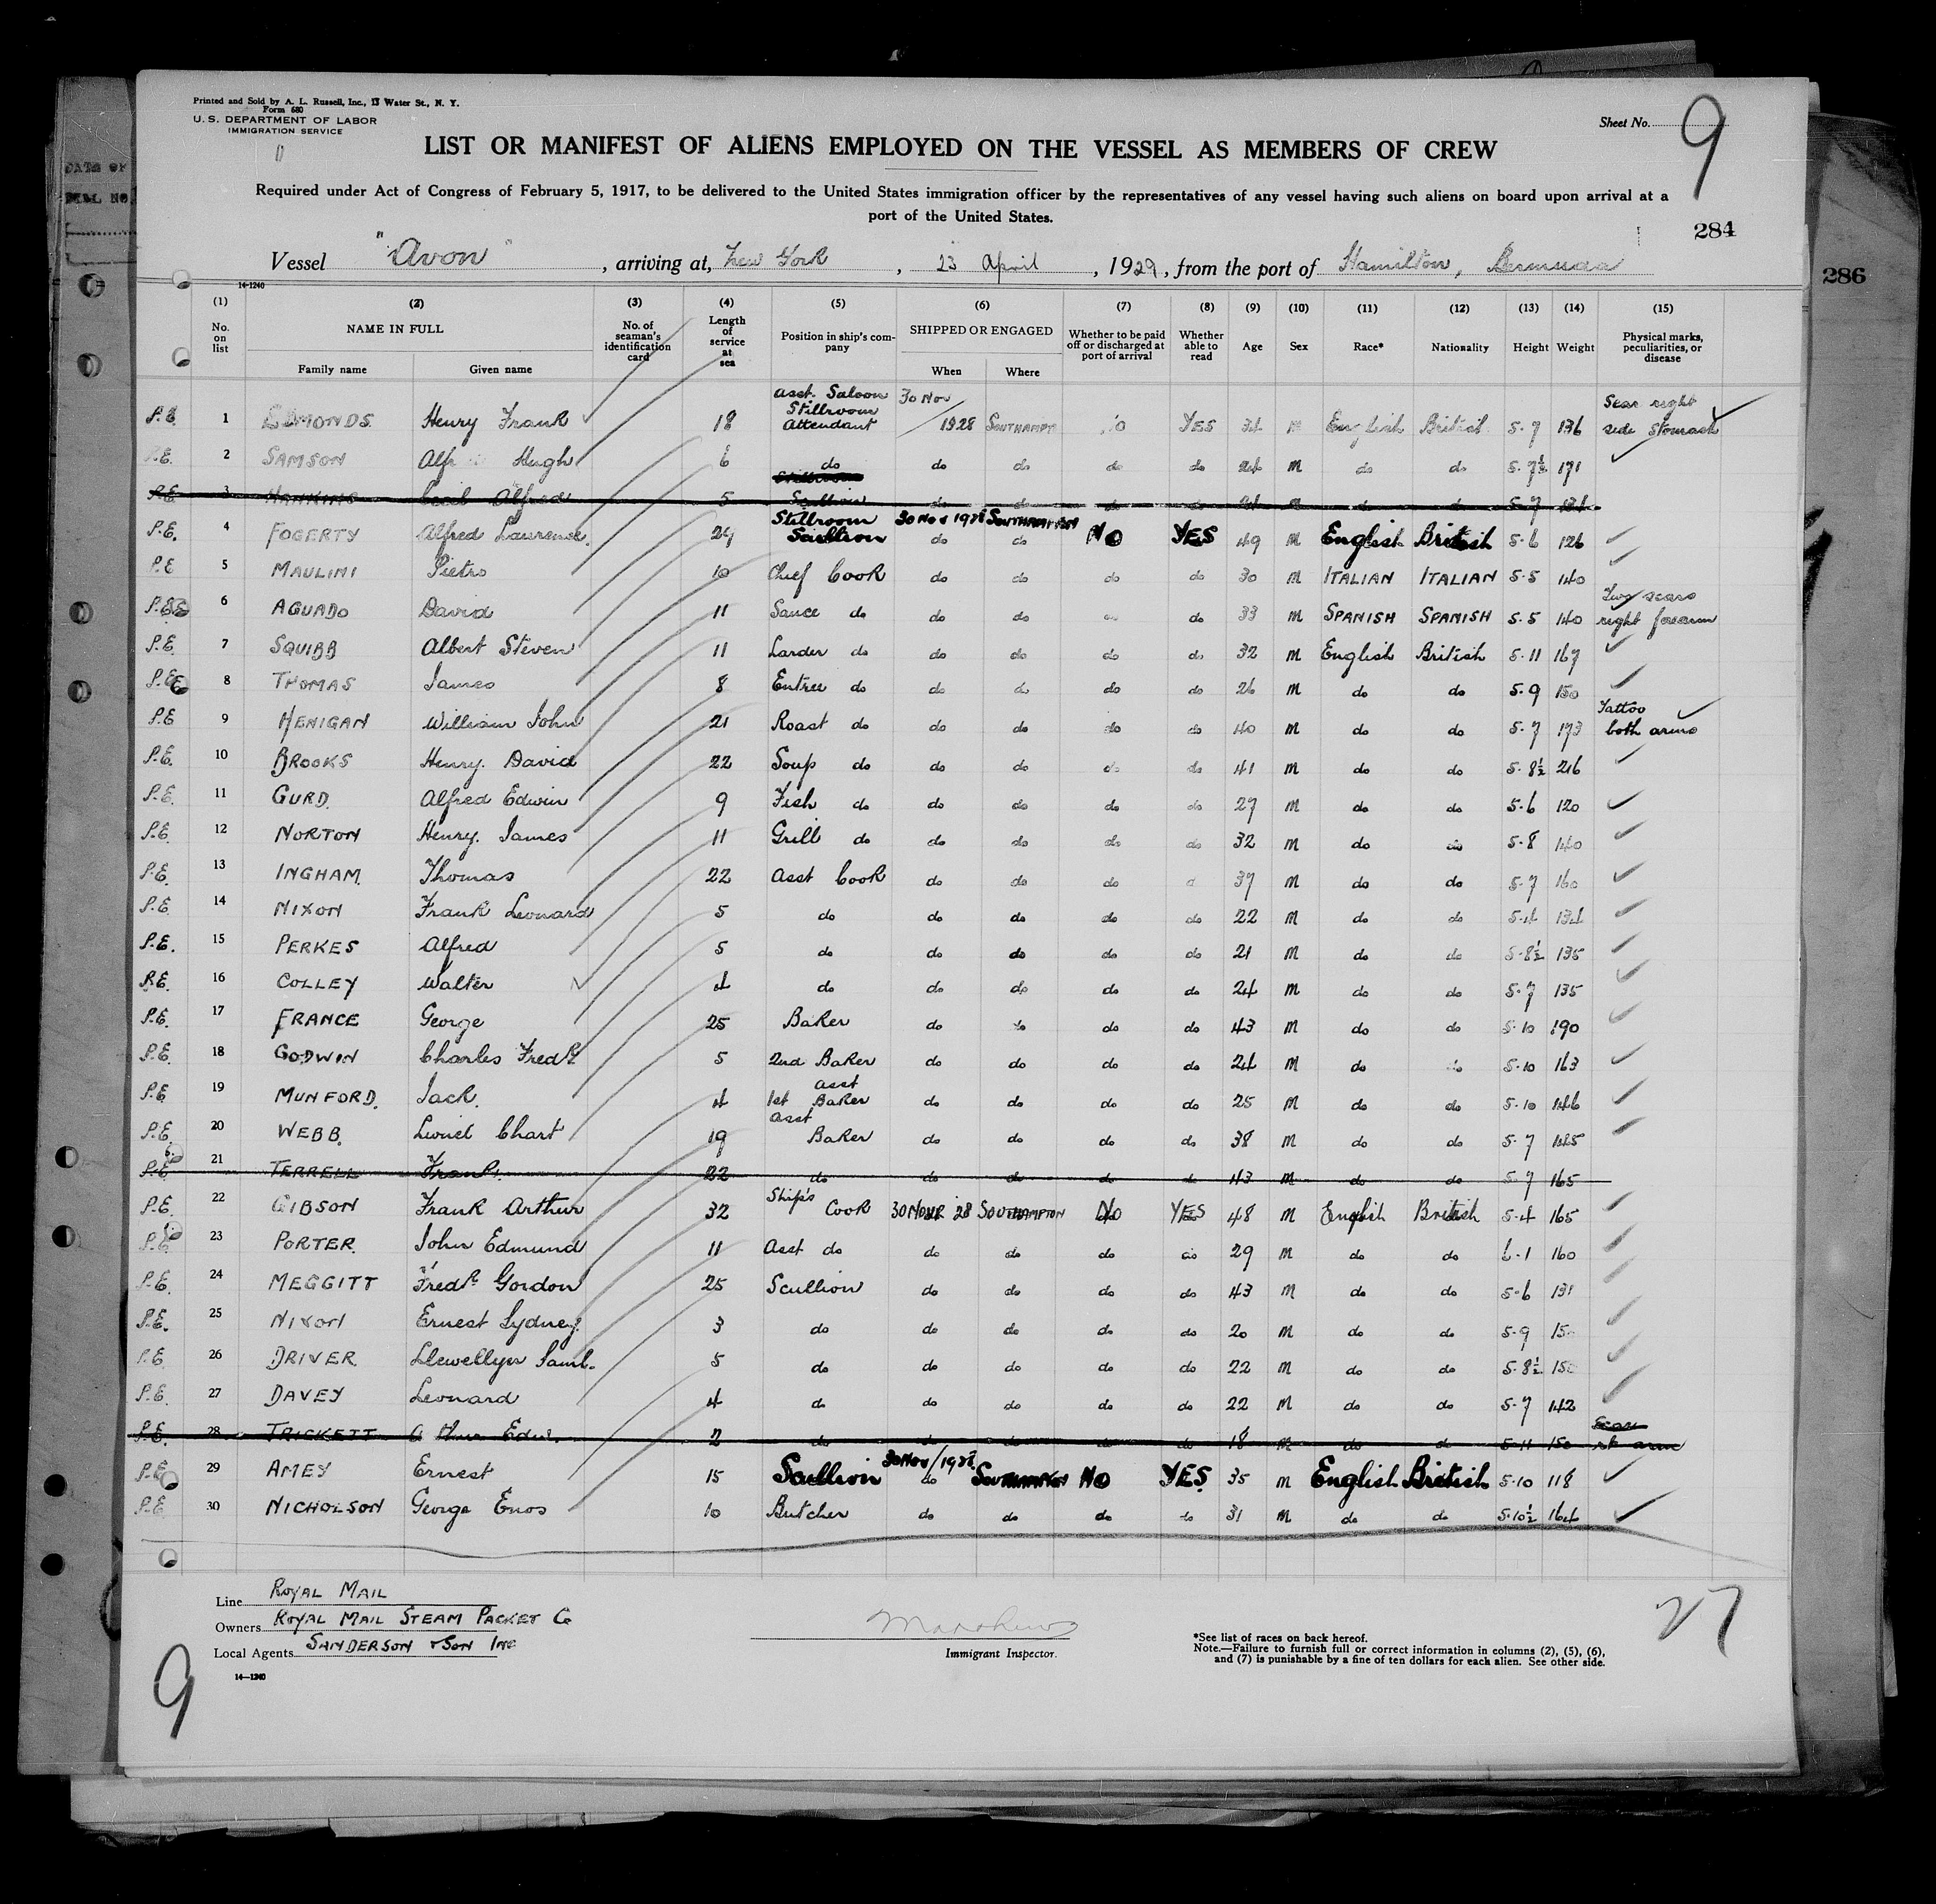 Printed and Sold by A. L. Russell, Inc., 13 Water St., N. Y.
Form 680
U. S. DEPARTMENT OF LABOR
IMMIGRATION SERVICE
Sheet No. 9
LIST OR MANIFEST OF ALIENS EMPLOYED ON THE VESSEL AS MEMBERS OF CREW
Required under Act of Congress of February 5, 1917, to be delivered to the United States immigration officer by the representatives of any vessel having such aliens on board upon arrival at a
port of the United States.
284
286
Vessel "Avon", arriving at, New York, 23 April, 1929, from the port of Hamilton, Bermuda
14-1240
(1) No. on list (2) NAME IN FULL Family name Given name (3) No. of seaman's identification card (4) Length of service at sea (5) Position in ship's company (6) SHIPPED OR ENGAGED When Where (7) Whether to be paid off or discharged at port of arrival (8) Whether able to read (9) Age (10) Sex (11) Race* (12) Nationality (13) Height (14) Weight (15) Physical marks, peculiarities, or disease
P.E. 1 EDMONDS Henry Frank 18 Asst. Saloon Stillroom Attendant 30 Nov 1928 SOUTHAMPT YES 34 English British 5.7 136 Scar right side stomach
P.E. 2 SAMSON Hugh 6 do do do do do 24 M do do 5.7½ 171
P.E. 3 HAWKINS Cecil Alfred 5 Scullion do do do do M do do 5.7 134
P.E. 4 FOGERTY Alfred Laurence 29 Stillroom Scullion 30 Nov 1928 SOUTHAMPTON do do NO YES 49 M English British 5.6 126
P.E 5 MAULINI Pietro 10 Chief Cook do do do do 30 M ITALIAN ITALIAN 5.5 140
P.E. 6 AGUADO David 11 Sauce do do do do do 33 M SPANISH SPANISH 5.5 140 Two scars right forearm
P.E. 7 SQUIBB Albert Steven 11 Larder do do do do do 32 M English British 5.11 167
P.E. 8 THOMAS James 8 Entree do do do do do 26 M do do 5.9 150
P.E 9 HENIGAN William John 21 Roast do do do do do 40 M do do 5.7 173 Tattoo both arms
P.E. 10 BROOKS Henry David 22 Soup do do do do do 41 M do do 5.8½ 216
P.E. 11 GURD. Alfred Edwin 9 Fish do do do do do 27 M do do 5.6 120
P.E. 12 NORTON Henry James 11 Grill do do do do do 32 M do do 5.8 140
P.E. 13 INGHAM. Thomas 22 Asst Cook do do do 37 M do do 5.7 160
P.E. 14 NIXON Frank Leonard 5 do do do do do 22 M do do 5.4 134
P.E. 15 PERKES Alfred 5 do do do do do 21 M do do 5.8½ 135
P.E. 16 COLLEY Walter 4 do do do do do 24 M do do 5.7 135
P.E. 17 FRANCE George 25 Baker do do do do 43 M do do 5.10 190
P.E. 18 GODWIN Charles Fredk 5 2nd Baker do do do do 24 M do do 5.10 163
P.E 19 MUNFORD. Jack. 4 1st Asst Baker do do do do 25 M do do 5.10 146
P.E. 20 WEBB. Lionel Chart 19 Asst Baker do do do do 38 M do do 5.7 145
P.E. 21 TERRELL Frank. 22 do do do do do 43 M do do 5.7 165
P.E. 22 GIBSON Frank Arthur 32 Ship's Cook 30 NOVR 28 SOUTHAMPTON NO YES 48 M English British 5.4 165
P.E. 23 PORTER. John Edmund 11 Asst do do do do do 29 M do do 6.1 160
P.E. 24 MEGGITT Fredk Gordon 25 Scullion do do do do 43 M do do 5.6 131
P.E. 25 NIXON Ernest Sydney. 3 do do do do do 20 M do do 5.9
P.E. 26 DRIVER. Llewellyn Saml. 5 do do do do do 22 M do do 5.8½
P.E. 27 DAVEY Leonard 4 do do do do do 22 M do do 5.7 142
P.E. 28 TRICKETT 2 do do do do do 18 M do do 5.11 150 Scar rt arm
P.E. 29 AMEY Ernest 15 Scullion 30 Nov/1928 do SOUTHAMPTON NO YES 35 M English British 5.10 118
P.E 30 NICHOLSON George Enos 10 Butcher do do do do 31 M do do 5.10½ 164
Line ROYAL MAIL
Owners ROYAL MAIL STEAM PACKET Co
Local Agents SANDERSON & SON INC
14—1240
Immigrant Inspector.
*See list of races on back hereof.
Note.—Failure to furnish full or correct information in columns (2), (5), (6),
and (7) is punishable by a fine of ten dollars for each alien. See other side.
27
9